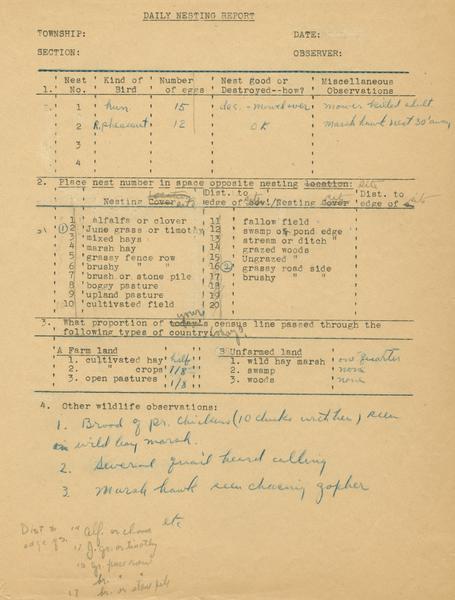 DAILY NESTING REPORT
TOWNSHIP: DATE:
SECTION: OBSERVER:
Nest Kind of Number Nest good or Miscellaneous
1. No. Bird of eggs Destroyed--how? Observations
1 hun 15 des. - mower mower killed adult
2 R.pheasant 12 OK marsh hawk nest 30' away
3
4
2. Place nest number in space opposite nesting location: site
Dist. to Dist. to
Nesting Cover site edge of cov!/Nesting Cover site edge of
1 alfalfa or clover 11 fallow field
① 2 June grass or timothy 12 swamp or pond edge
3 mixed hays 13 stream or ditch "
4 marsh hay 14 grazed woods
5 grassy fence row 15 Ungrazed "
6 brushy " 16 ② grassy road side
7 brush or stone pile 17 brushy " "
8 boggy pasture 18
9 upland pasture 19
10 cultivated field 20
your
3. What proportion of today's census line passed through the
following types of country:
A Farm land B Unfarmed land
1. cultivated hay half 1. wild hay marsh one quarter
2. " crops 1/8 2. swamp none
3. open pastures 1/8 3. woods none
4. Other wildlife observations:
1. Brood of pr. chickens (10 chicks with her) seen
in wild hay marsh.
2. Several quail heard calling
3. Marsh hawk seen chasing gopher
etc
Dist to
edge
Alf. or clover
J. gr. or timothy
gr. fence row
br. " "
br. or stone pile